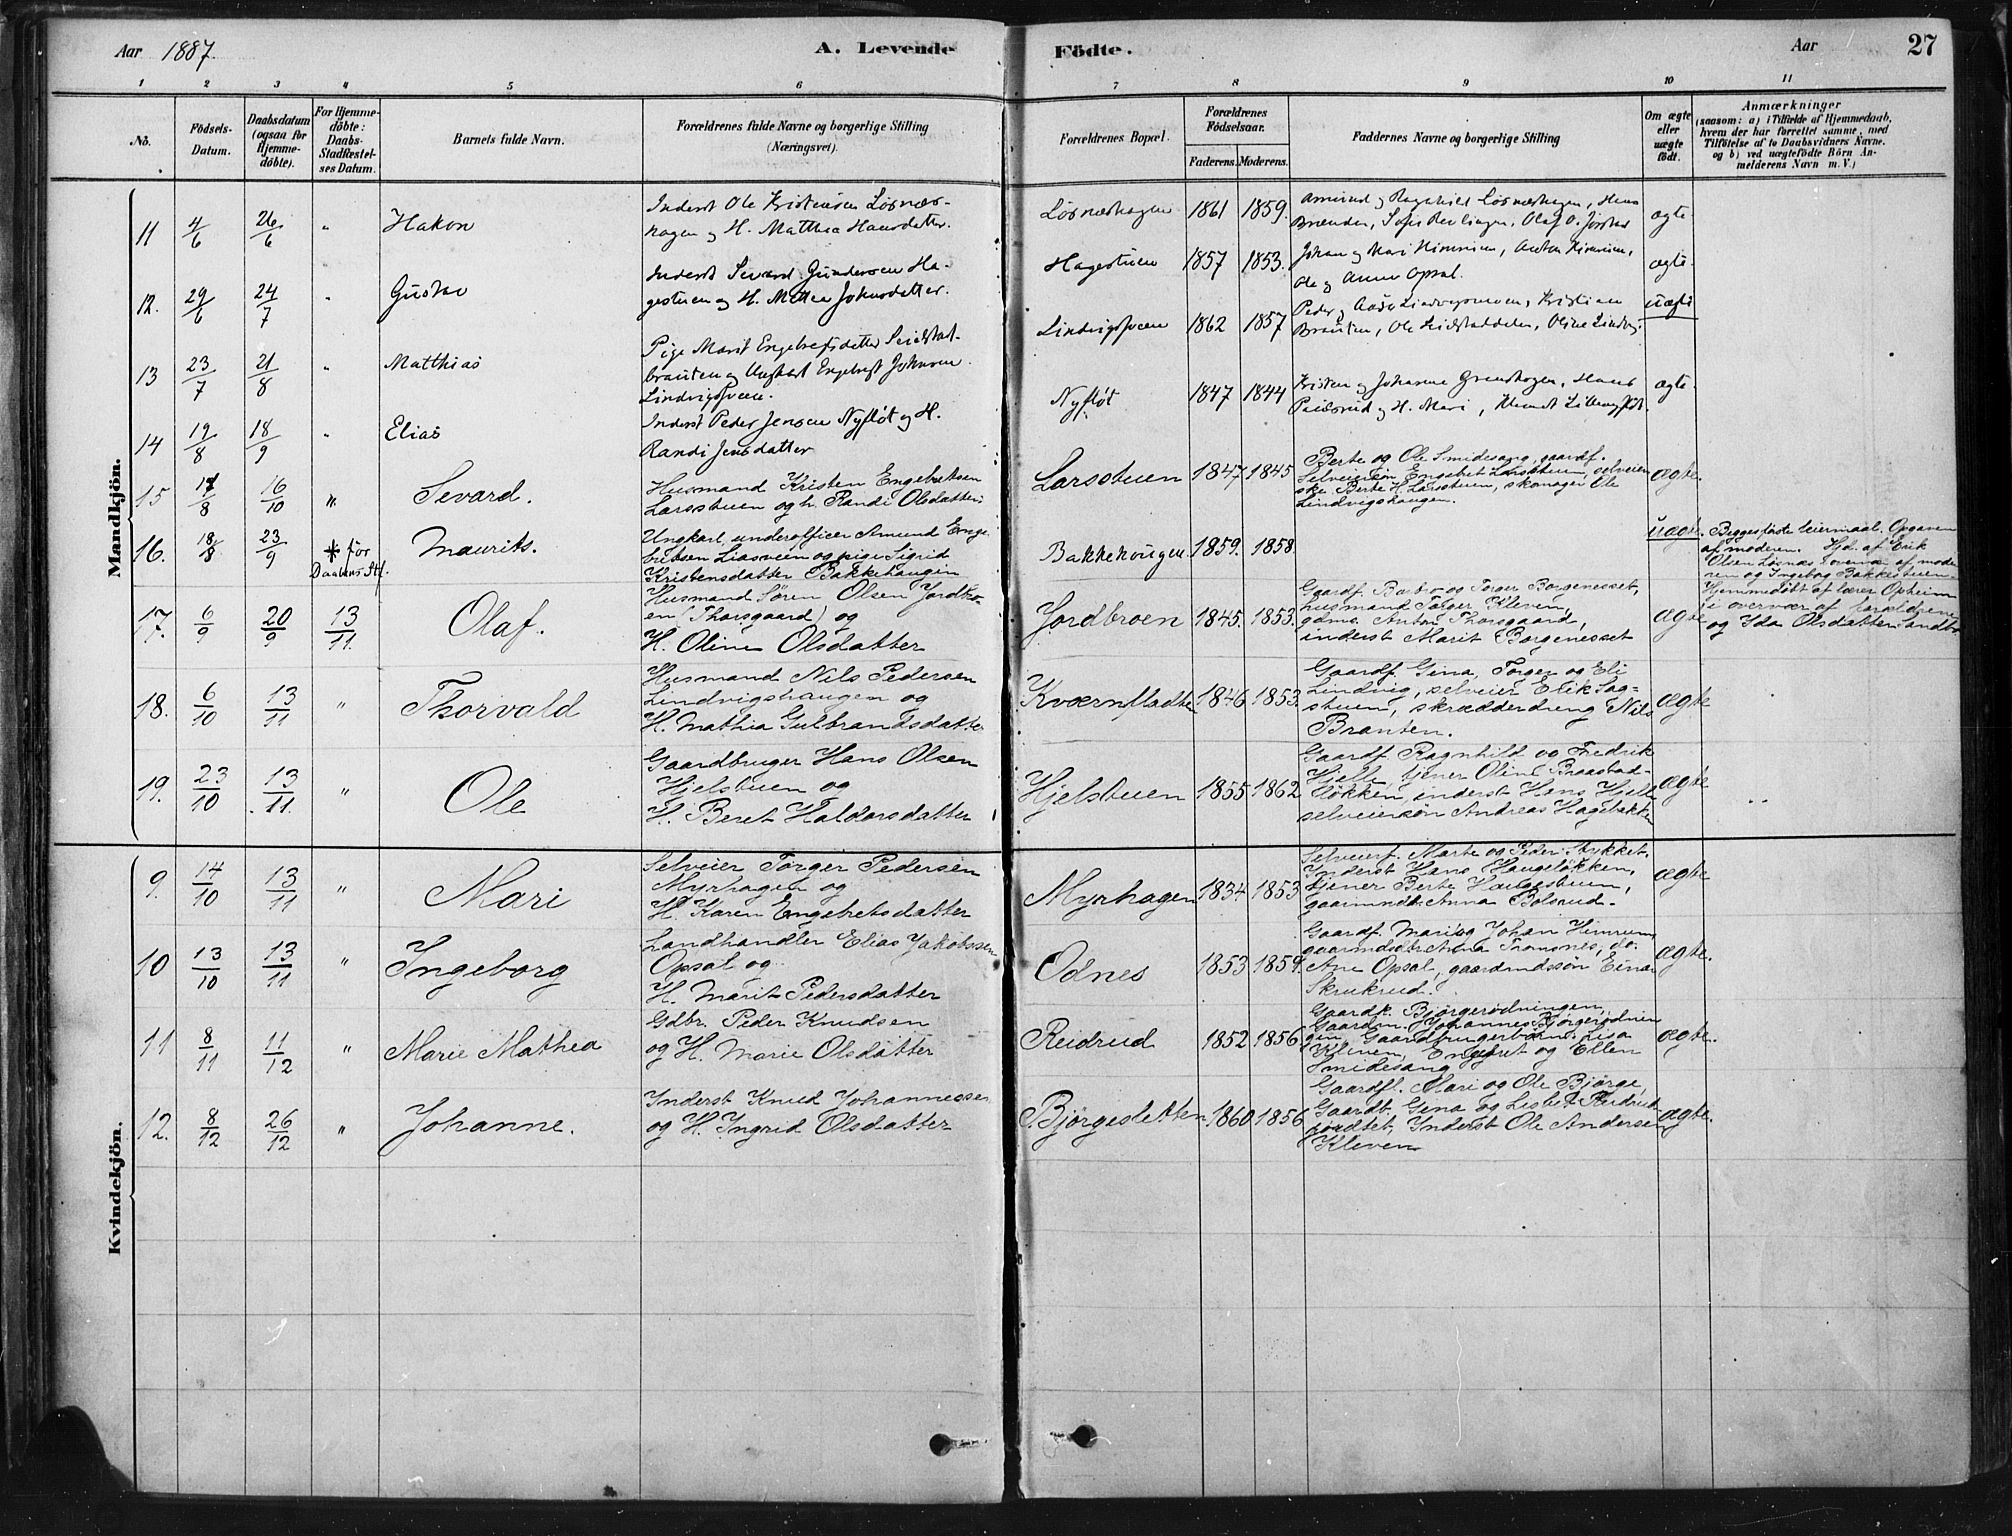 Aar 1887.
A. Levende Födte.
Aar
27
1 2 3 4 5 6 7 8 9 10 11
No.
Födsels-
Datum.
Daabsdatum
(ogsaa for
Hjemme-
döbte).
For Hjemme-
döbte:
Daabs-
Stadfæstel-
ses Datum.
Barnets fulde Navn.
Forældrenes fulde Navne og borgerlige Stilling
(Næringsvei).
Forældrenes Bopæl.
Forældrenes
Födselsaar.
Faderens. Moderens.
Faddernes Navne og borgerlige Stilling
Om ægte
eller
uægte
født.
Anmærkninger
(saasom: a) i Tilfælde af Hjemmedaab,
hvem der har forrettet samme, med
Tilföielse af to Daabsvidners Navne.
og b) ved uægtefödte Börn An-
melderens Navn m. V.)
Mandkjön.
11 4/6 26/6 " Hakon
Inderst Ole Kristensen Løsnæs-
hagen og H. Matthea Hansdatter.
Løsnæshagen 1861 1859.
Amund og Ragnhild Løsnæshagen, Hans
ægte
12. 29/6 24/7 " Gustav
Inderst Sevard Gundersen Ha-
gestuen og H. Mathea Johnsdatter.
Hagestuen 1857 1853.
Johan og Mari Himrum, Anton Himrum,
Ole og Anne Opsal.
ægte.
13 23/7 21/8 " Matthias
Pige Marit Engebretsdatter
brauten og Ungkarl Engebret Johnsen
Lindvigsveen.
Lindvigsveen 1862 1857
Peder og Kristian
Brauten, Ole Oline
uægte
14 19/8 18/9 " Elias
Inderst Peder Jensen Nyfløt og H.
Randi Jensdatter
Nyfløt 1847 1844
Kristen og Johanne Hans
og H. Mari,
ægte.
15 17/8 16/10 " Sevard.
Husmand Kristen Engebretsen
Larsstuen og h. Randi Olsdatter.
Larsstuen 1847 1845
Berte og Ole Smidesang, gaardf.
Selveiersön Engebret Larsstuen, selveier
ske. Berte H. Larsstuen, skomager Ole
Lindvigshaugen.
ægte.
16. 18/8 23/9 * før
Daabens Stf.
Maurits.
Ungkarl, underofficer Amund Enge
bretsen Liasveen og pige Sigrid
Kristensdatter Bakkehaugen
Bakkehougen 1859. 1858.
uægte.
Begges første leiermaal. Opgaven
af moderen. Hjd. af Erik
Olsen Løsnæs i overvær af mode
ren og Ingeborg Bakkestuen.
17. 6/9 20/9 13/11. Olaf.
Husmand Sören Olsen Jordbro-
en (Thorsgaard) og
H. Oline Olsdatter
Jordbroen 1845. 1853.
Gaardf. Barbro og Torger Borgenesset,
husmand Torger Kleven,
gdms. Anton Thorsgaard,
inderst Marit Borgenesset
ægte
Hjemmedøbt af lærer Opheim
i overvær af forældrene
og Ida Olsdatter Sandbo
18. 6/10 13/11 " Thorvald
Husmand Nils Pedersen
Lindvigshaugen og
H. Mathia Gulbrandsdatter
Kværnfladten 1846 1853.
Gaardf. Gina, Torger og Eli
Lindvig, selveier Erik Sag-
stuen, skrædderdreng Nils
Branten.
ægte
19. 23/10 13/11. " Ole
Gaardbruger Hans Olsen
Hjelstuen og
H. Beret Haldorsdatter
Hjelstuen 1855 1862
Gaardf. Ragnhild og Fredrik
Hjelle, tjener Oline Braastad-
løkken, inderst Hans Hjelle
selveiersön Andreas Hagebakken
ægte
Kvindekjön.
9. 14/10 13/11 " Mari
Selveier Torger Pedersen
Myrhagen og
H. Karen Engebretsdatter
Myrhagen 1834 1853
Selveierf. Marte og Peder Stykket,
Inderst Hans Haugsløkken,
tjener Berte Haugstuen,
gaarmdtr. Anna Bolsrud.
ægte
10 13/10 13/11 " Ingeborg
Landhandler Elias Jakobssen
Opsal og
H. Marit Pedersdatter
Odnes 1853 1859.
Gaardf. Mari og Johan Himrum,
gaarmdsdtr. Anna Tromsnes, do.
Ane Opsal, gaardmdssön Einar
Skrukrud.
ægte.
11 8/11 11/12 " Marie Mathea
Gdbr. Peder Knudsen
og H. Marie Olsdatter
Reidrud 1852 1856
Gaardk. Bjørgerødningen,
Gaardm. Johannes Bjørgerødnin
gen, Gaardbrugerbarn. Lisa
Kleven, Engebret og Ellen
Smidesang
ægte.
12. 8/12 26/12 " Johanne.
Inderst Knud Johannessen
og H. Ingrid Olsdatter
Bjørgesletten 1860 1856
Gaardfl. Mari og Ole Bjørge,
Gaardb. Gina og Lisbet Reidrud-
Inderst Ole Andersen
Kleven
ægte.